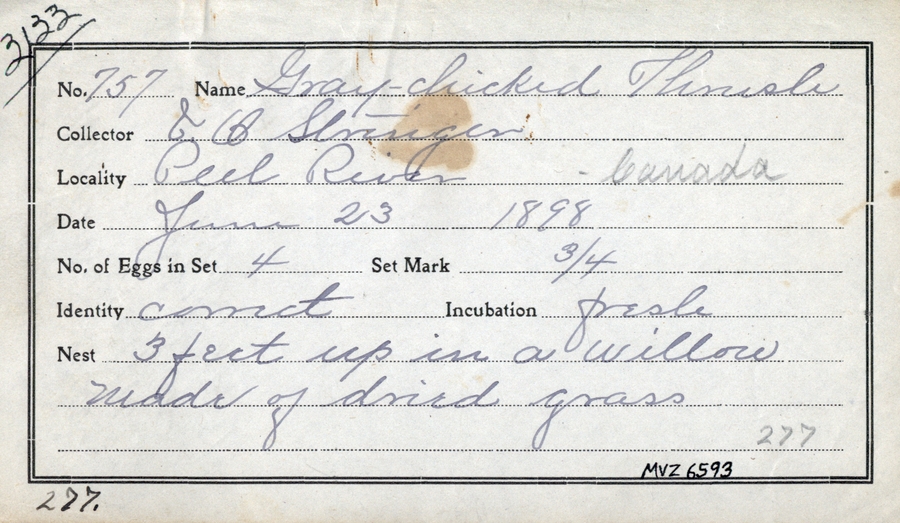 3133
No. 757 Name Gray-chicked Thrush
Collector E A Stringer
Locality Peel River - Canada
Date June 23 1898
No. of Eggs in Set 4 Set Mark 3/4
Identity correct Incubation fresh
Nest 3 feet up in a willow
made of dried grass
277
MVZ 6593
277.